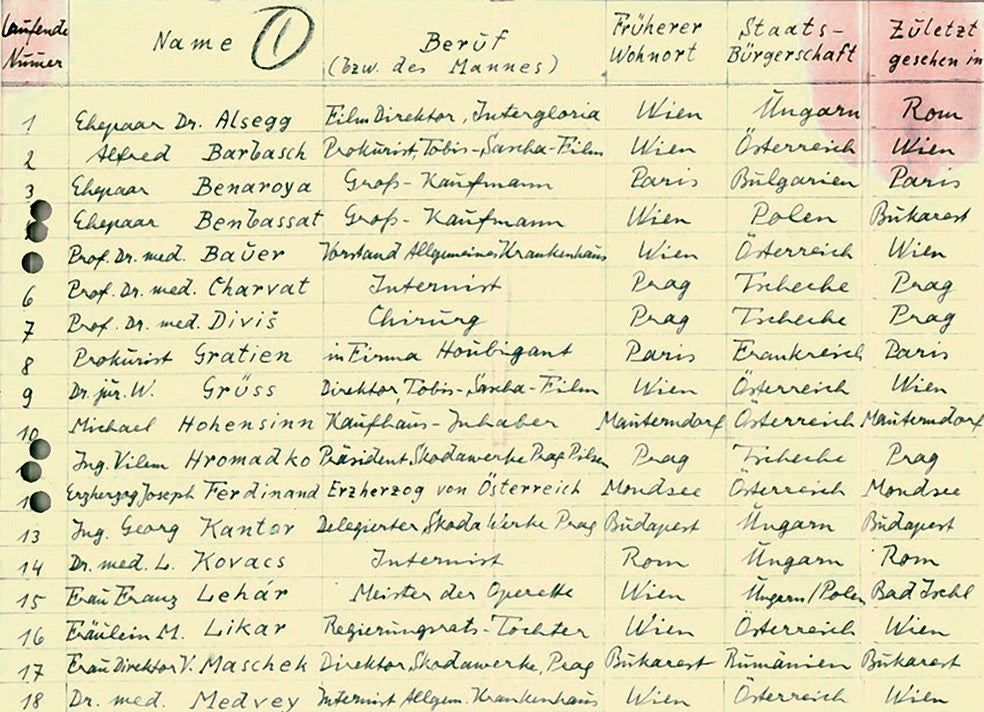 Laufende Numer Name 1 Beruf (bzw. des Mannes) Früherer Wohnort Staats-Bürgerschaft Zuletzt gesehen in
1 Ehepaar Dr. Alsegg Film Direktor, Intergloria Wien Ungarn Rom
2 Alfred Barbasch Prokurist, Tobis-Sascha-Film Wien Österreich Wien
3 Ehepaar Benaroya Groß-Kaufmann Paris Bulgarien Paris
Ehepaar Benbassat Groß-Kaufmann Wien Polen Bukarest
Prof. Dr. med. Baŭer Vorstand Allgemeines Krankenhaus Wien Österreich Wien
6 Prof. Dr. med. Charvat Internist Prag Tscheche Prag
7 Prof. Dr. med. Diviš Chirurg Prag Tscheche Prag
8 Prokurist Gratien in Firma Houbigant Paris Frankreich Paris
9 Dr. jur. W. Grüss Direktor, Tobis-Sascha-Film Wien Österreich Wien
10 Michael Hohensinn Kaufhaus-Inhaber Mauterndorf Österreich Mauterndorf
Ing. Vilem Hromadko Präsident Skodawerke Prag Pilsen Prag Tscheche Prag
1 Erzherzog Joseph Ferdinand Erzherzog von Österreich Mondsee Österreich Mondsee
13 Ing. Georg Kantor Delegierter Skoda Werke Prag Budapest Ungarn Budapest
14 Dr. med. L. Kovacs Internist Rom Ungarn Rom
15 Frau Franz Lehár Meister der Operette Wien Ungarn/Polen Bad Ischl
16 Fräulein M. Likar Regierungsrats-Tochter Wien Österreich Wien
17 Frau Direktor V. Maschek Direktor, Skodawerke, Prag Bukarest Rumänien Bukarest
18 Dr. med. Medvey Internist Allgem. Krankenhaus Wien Österreich Wien